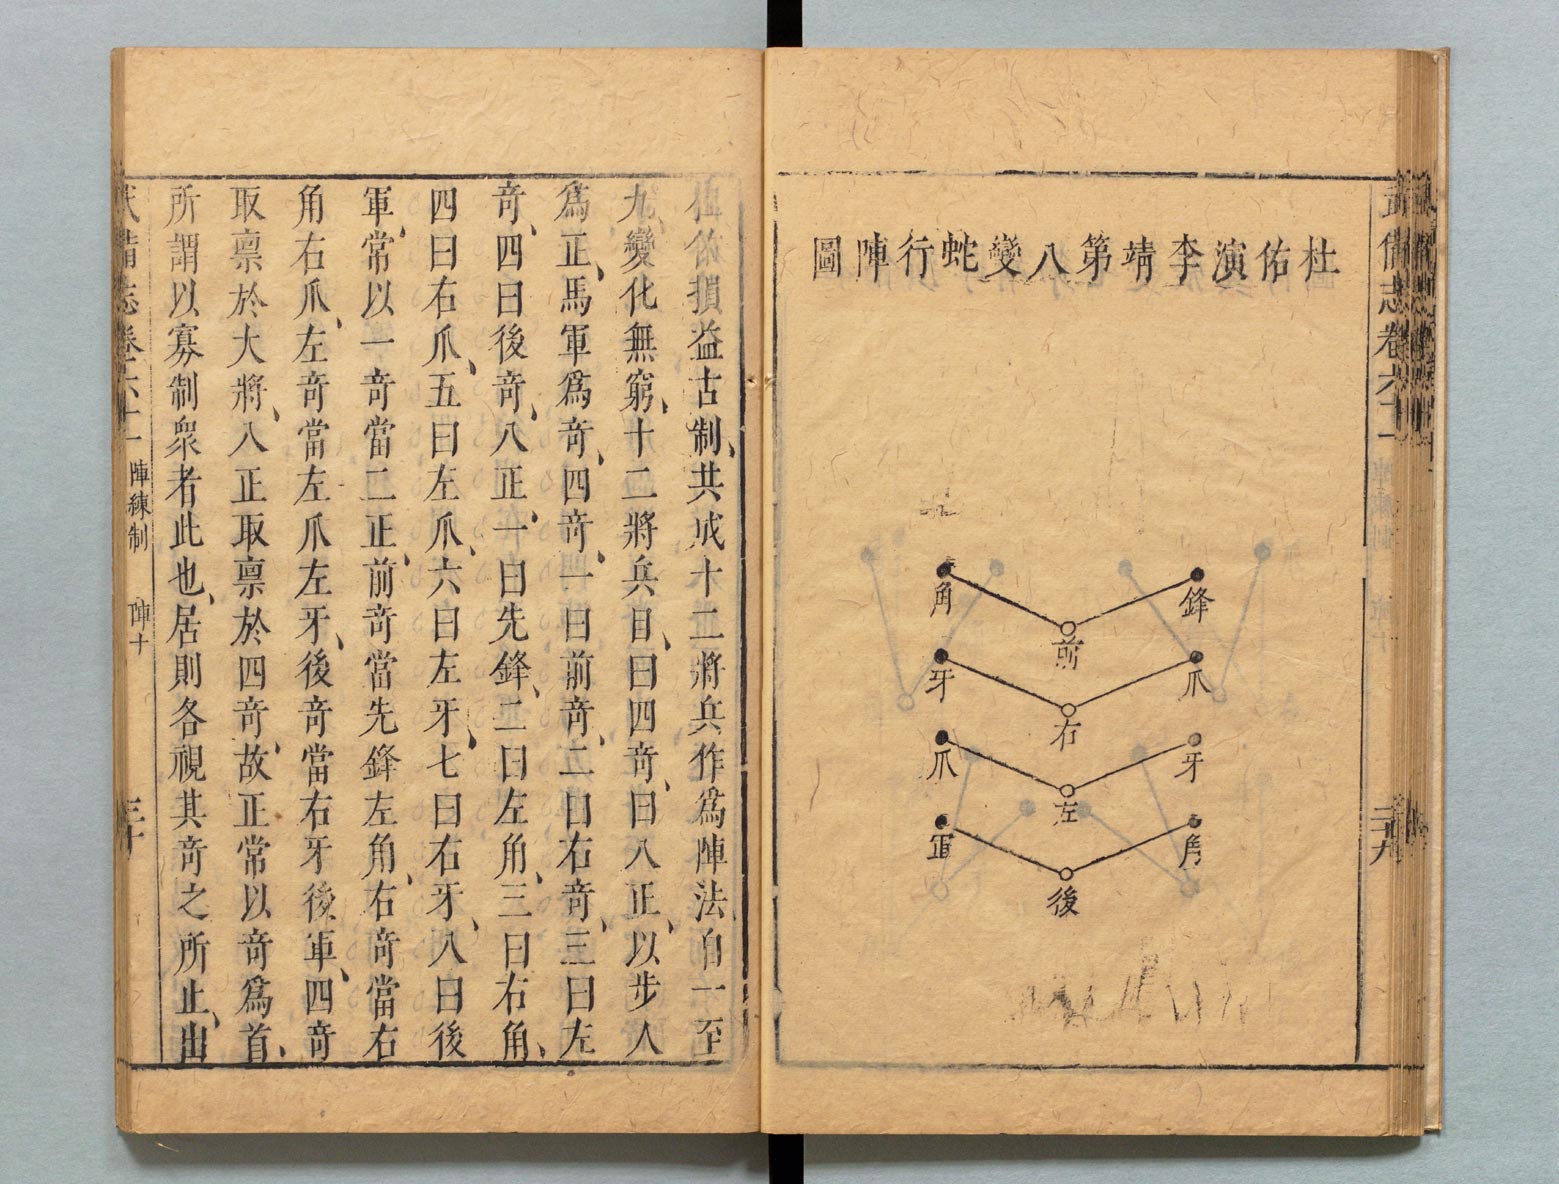 武備志卷六十一
二十九
杜佑演李靖第八變蛇行陣圖
鋒
角
前
爪
牙
右
牙
爪
左
角
軍
後
杜佑損益古制、共成十二將兵作爲陣法、自一至
九、變化無窮、十二將兵目、曰四竒、曰八正、以步人
爲正、馬軍爲竒、四竒、一曰前竒、二曰右竒、三曰左
竒、四曰後竒、八正、一曰先鋒、二曰左角、三曰右角、
四曰右爪、五曰左爪、六曰左牙、七曰右牙、八曰後
軍、常以一竒當二正、前竒當先鋒左角、右竒當右
角右爪、左竒當左爪左牙、後竒當右牙後軍、四竒
取禀於大將、八正取禀於四竒、故正常以竒爲首、
所謂以寡制衆者此也、居則各視其竒之所止、出
武備志卷六十一 陣練制 陣十
三十